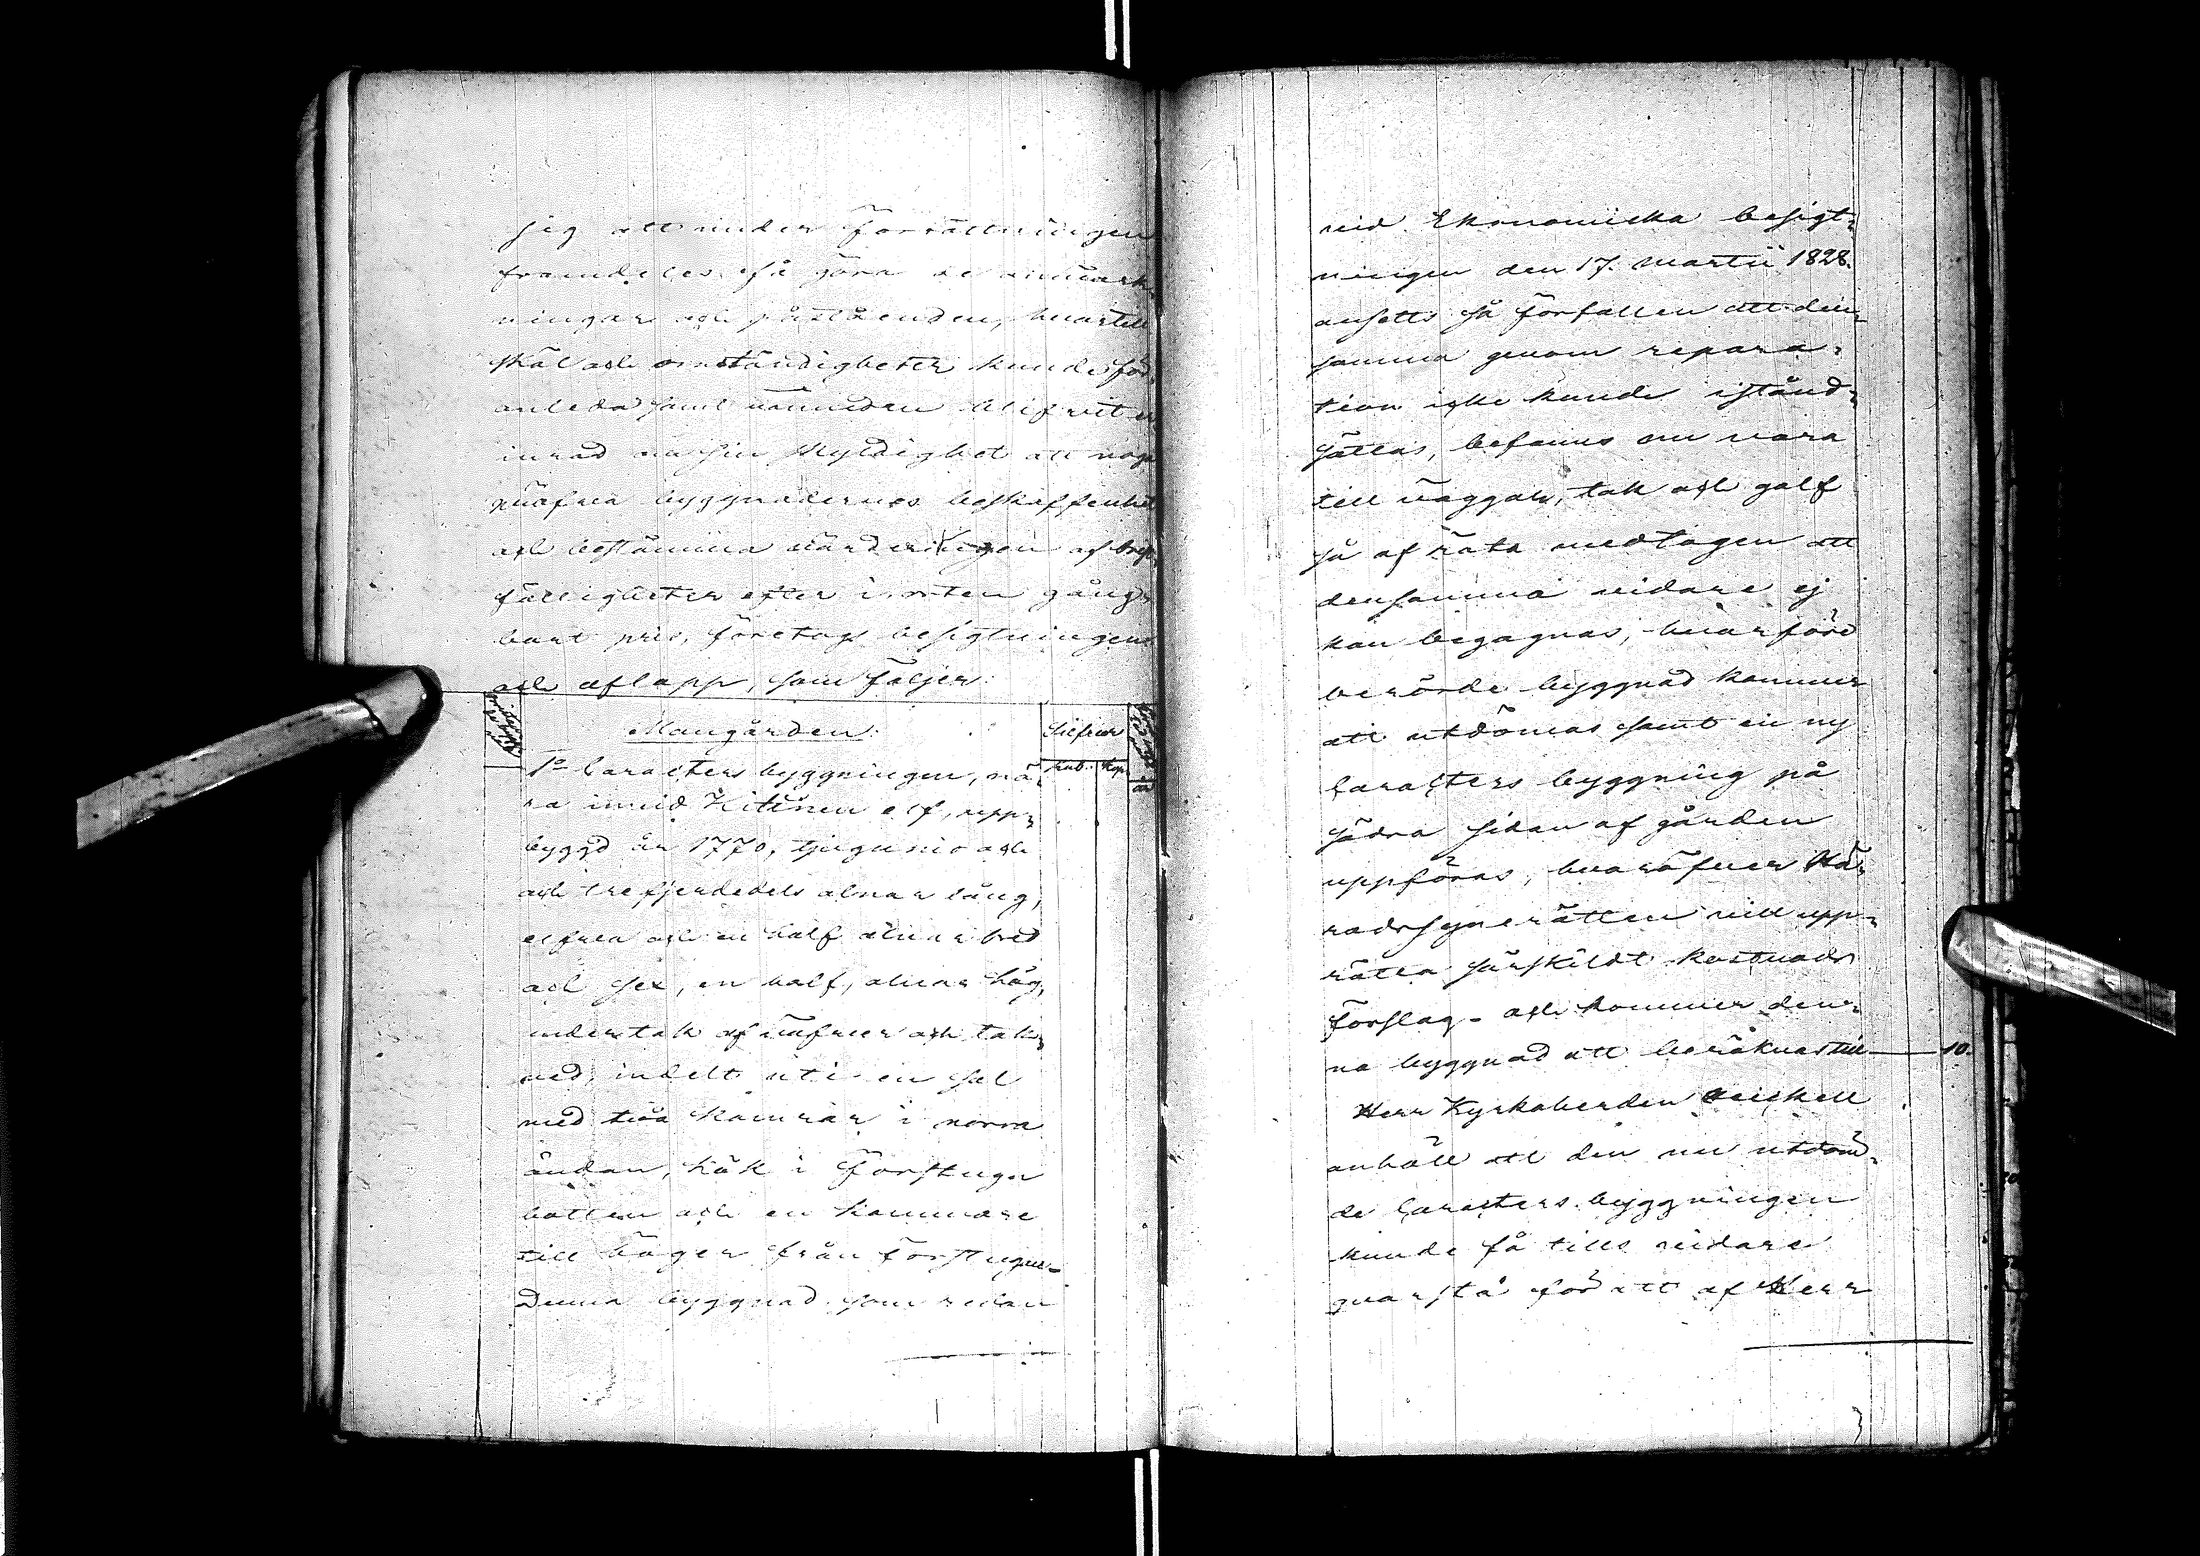 sig att under förrättningen
framdeles få göra de anmärk-
ningar och påståenden, hvartill
skäl och omständigheter kunde för-
anleda samt nämnden blifvit er-
inrad om sin skyldighet att noga
pröfva byggnadernes beskaffenhet
och bestämma värderingen af bris-
fälligheter efter i orten gång-
bart pris, företogs besigtningen
och aflopp, som följer:
Mangården.
Silfver
Rub. Kop.
1o Caracters byggningen, nä-
ra invid Kitinen elf, upp-
byggd år 1770, tjugunio och
och tre fjerdedels alnar lång,
elfva och en half alnar bred
och sex, en half, alnar hög,
under tak af näfver och tak-
ved, indelt uti en sal
med två kamrar i norra
ändan, kök i förstugu
botten och en kammare
till höger från förstugun-
Denna byggnad som redan
vid Ekonomiska besigt-
ningen den 17. Martii 1828.
ansetts så förfallen att den-
samma genom repara-
tion icke kunde istånd-
sättas, befanns nu vara
till väggar, tak och golf
så af röta medtagen att
densamma vidare ej
kan begagnas, hvarföre
berörde byggnad kommer
att utdömas samt en ny
Caracters byggning på
södra sidan af gården
uppföras, hvaröfver Hä-
radssynerätten vill upp-
rätta särskildt kostnads
förslag - och kommer den-
na byggnad att beräknas till — 10.
Herr Kyrkoherden
anhöll att den nu utdöm-
de Caracters byggningen
kunde få tills vidare
qvarstå för att af Herr